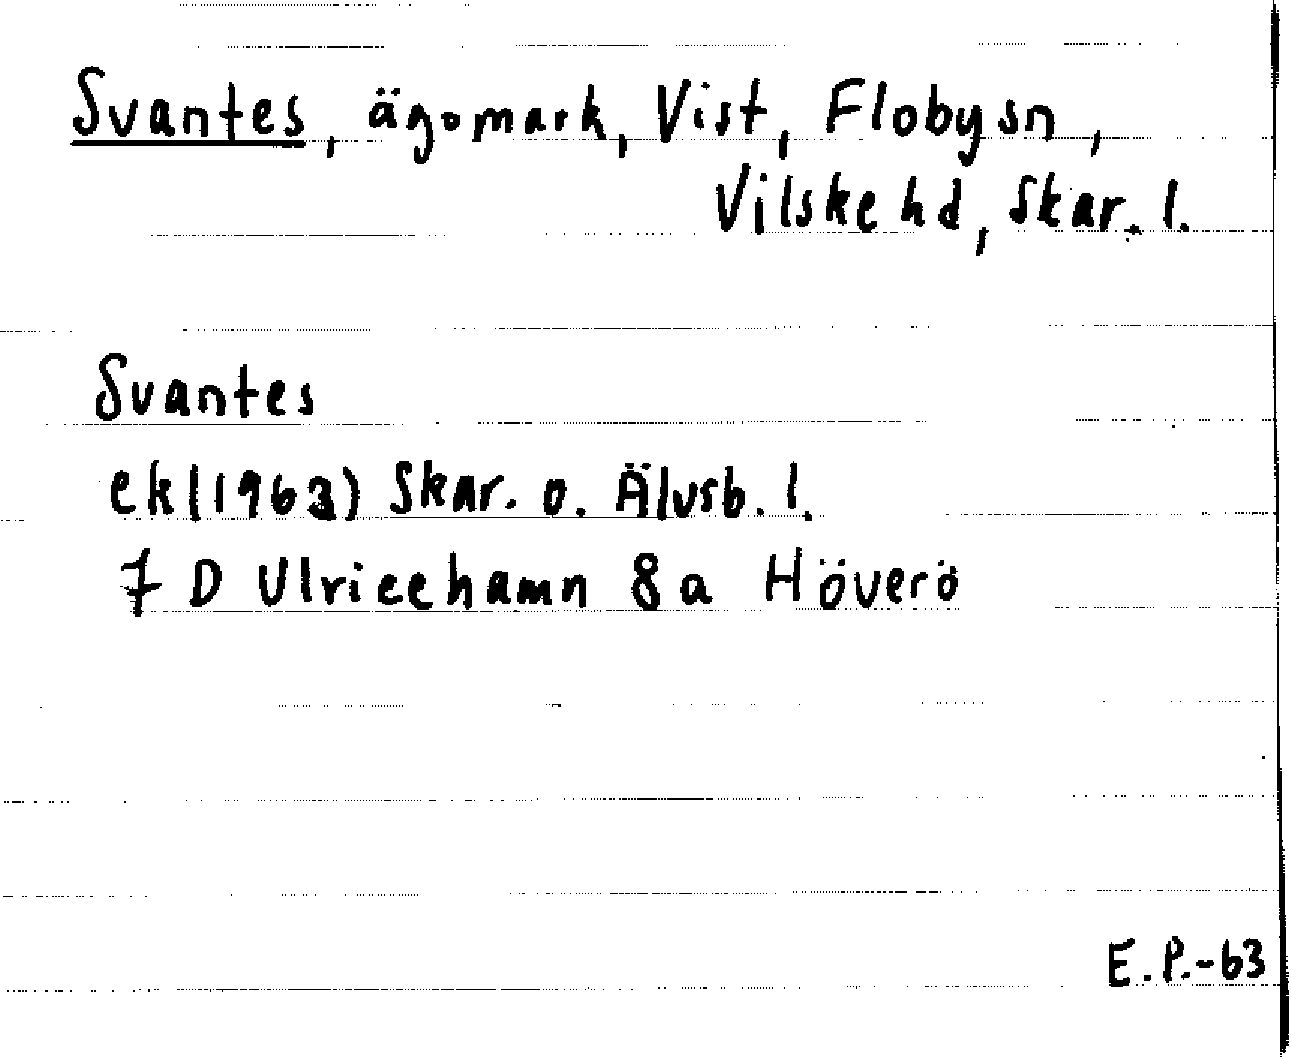 Svantes, ägomark, Vist, Floby sn,
Vilske hd, Skar. l.
Svantes
ek (1963) Skar. o. Älvsb. l.
7 D Ulricehamn 8 a Höverö
E.P.-63